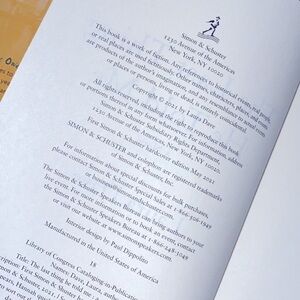 Simon & Schuster
1230 Avenue of the Americas
New York, NY 10020
This book is a work of fiction. Any references to historical events, real people,
or real places are used fictitiously. Other names, characters, places, and events
are products of the author's imagination, and any resemblance to actual events
or places or persons, living or dead, is entirely coincidental.
Copyright © 2021 by Laura Dave
All rights reserved, including the right to reproduce this book
or portions thereof in any form whatsoever. For information, address
Simon & Schuster Subsidiary Rights Department,
1230 Avenue of the Americas, New York, NY 10020.
First Simon & Schuster hardcover edition May 2021
SIMON & SCHUSTER and colophon are registered trademarks
of Simon & Schuster, Inc.
For information about special discounts for bulk purchases,
please contact Simon & Schuster Special Sales at 1-866-506-1949
or business@simonandschuster.com.
The Simon & Schuster Speakers Bureau can bring authors to your
live event. For more information or to book an event, contact
the Simon & Schuster Speakers Bureau at 1-866-248-3049
or visit our website at www.simonspeakers.com.
Interior design by Paul Dippolito
Manufactured in the United States of America
18
Library of Congress Cataloging-in-Publication
Title: The last thing he told me
Description: First Simon & Schuster